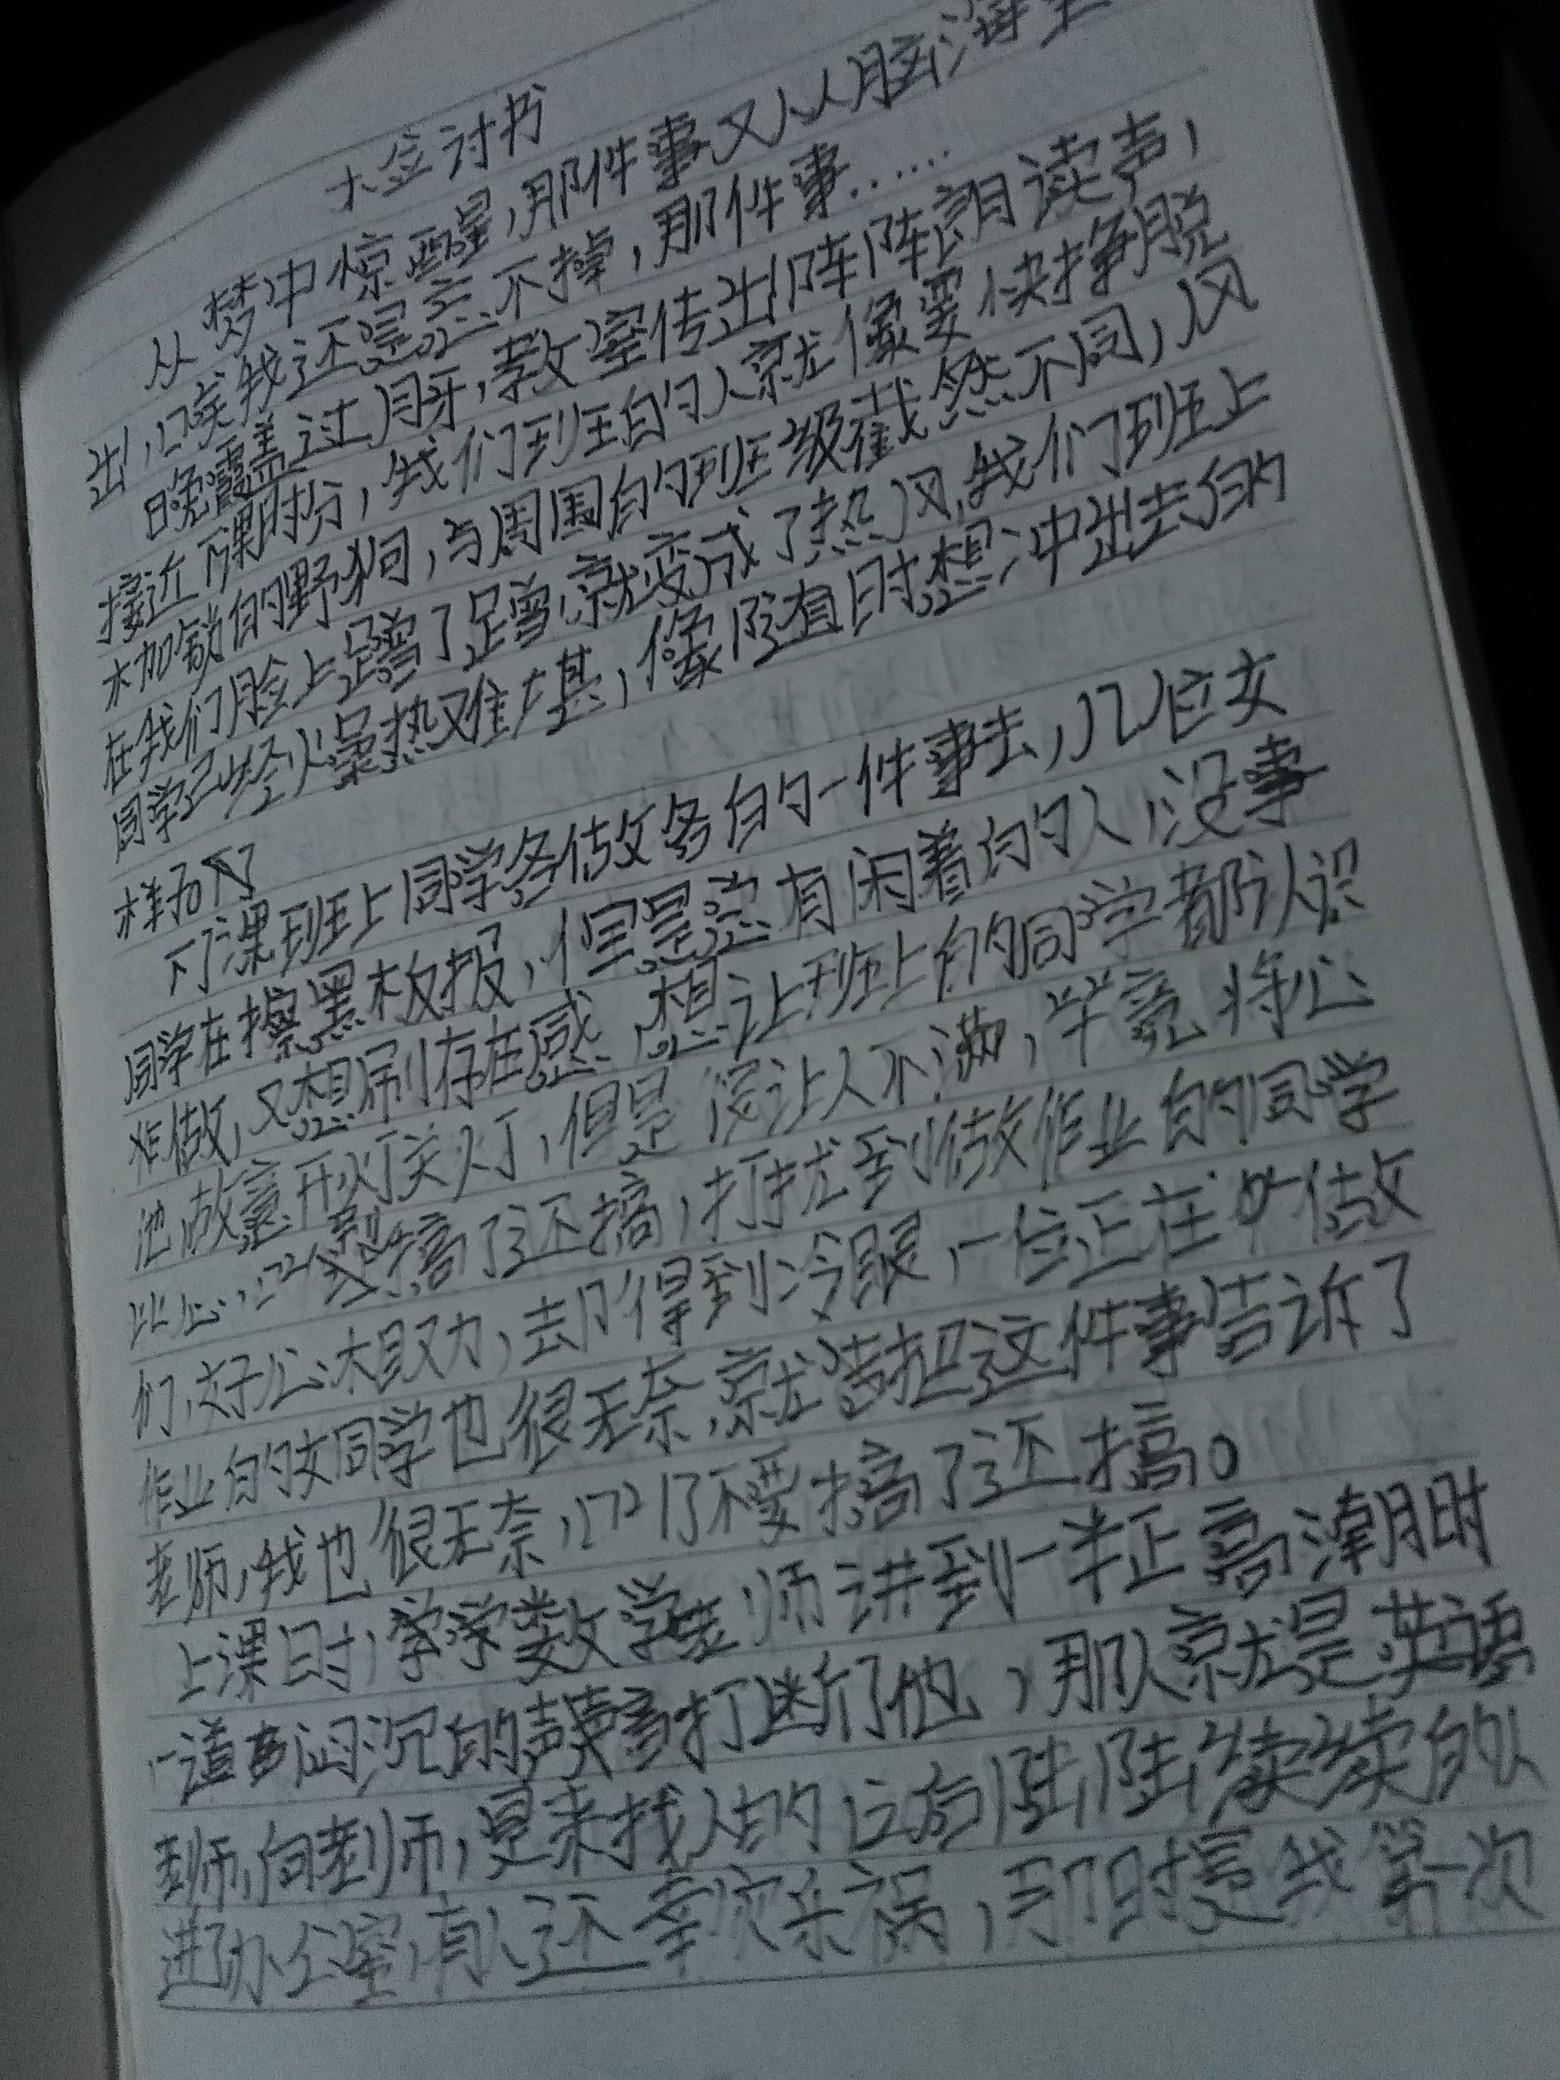 检讨书
从梦中惊醒,那件事又从脑海里
出,唉我还是忘不掉,那件事……
晚霞盖过月牙,教室传出阵阵朗读声,
接近下课时分,我们班的人就像要快挣脱
枷锁的野狗,与周围的班级截然不同,风
在我们脸上蹭了蹭,就变成了热风,我们班上
同学已经火暴热难堪,像随时想冲出去的
样子
下课班上同学各做各的一件事去,几位女
同学在擦黑板报,但是总有闲着的人没事
做,又想刷存在感,想让班上的同学都认识
他,故意开灯关灯,但是很让人不满,毕竟将心
比心,搞了还搞,打扰到做作业的同学
们,好心大的,却得到冷眼,一位正在做
作业的女同学也很无奈,就把这件事告诉了
老师,我也很无奈,不要搞了还搞。
上课时,数学老师讲到一半正高潮时
一道闷沉的声音打断了他,那人就是英语
老师,向老师,是来找人的,之后陆陆续续的人
进办公室,有人还幸灾乐祸,那时是我第一次